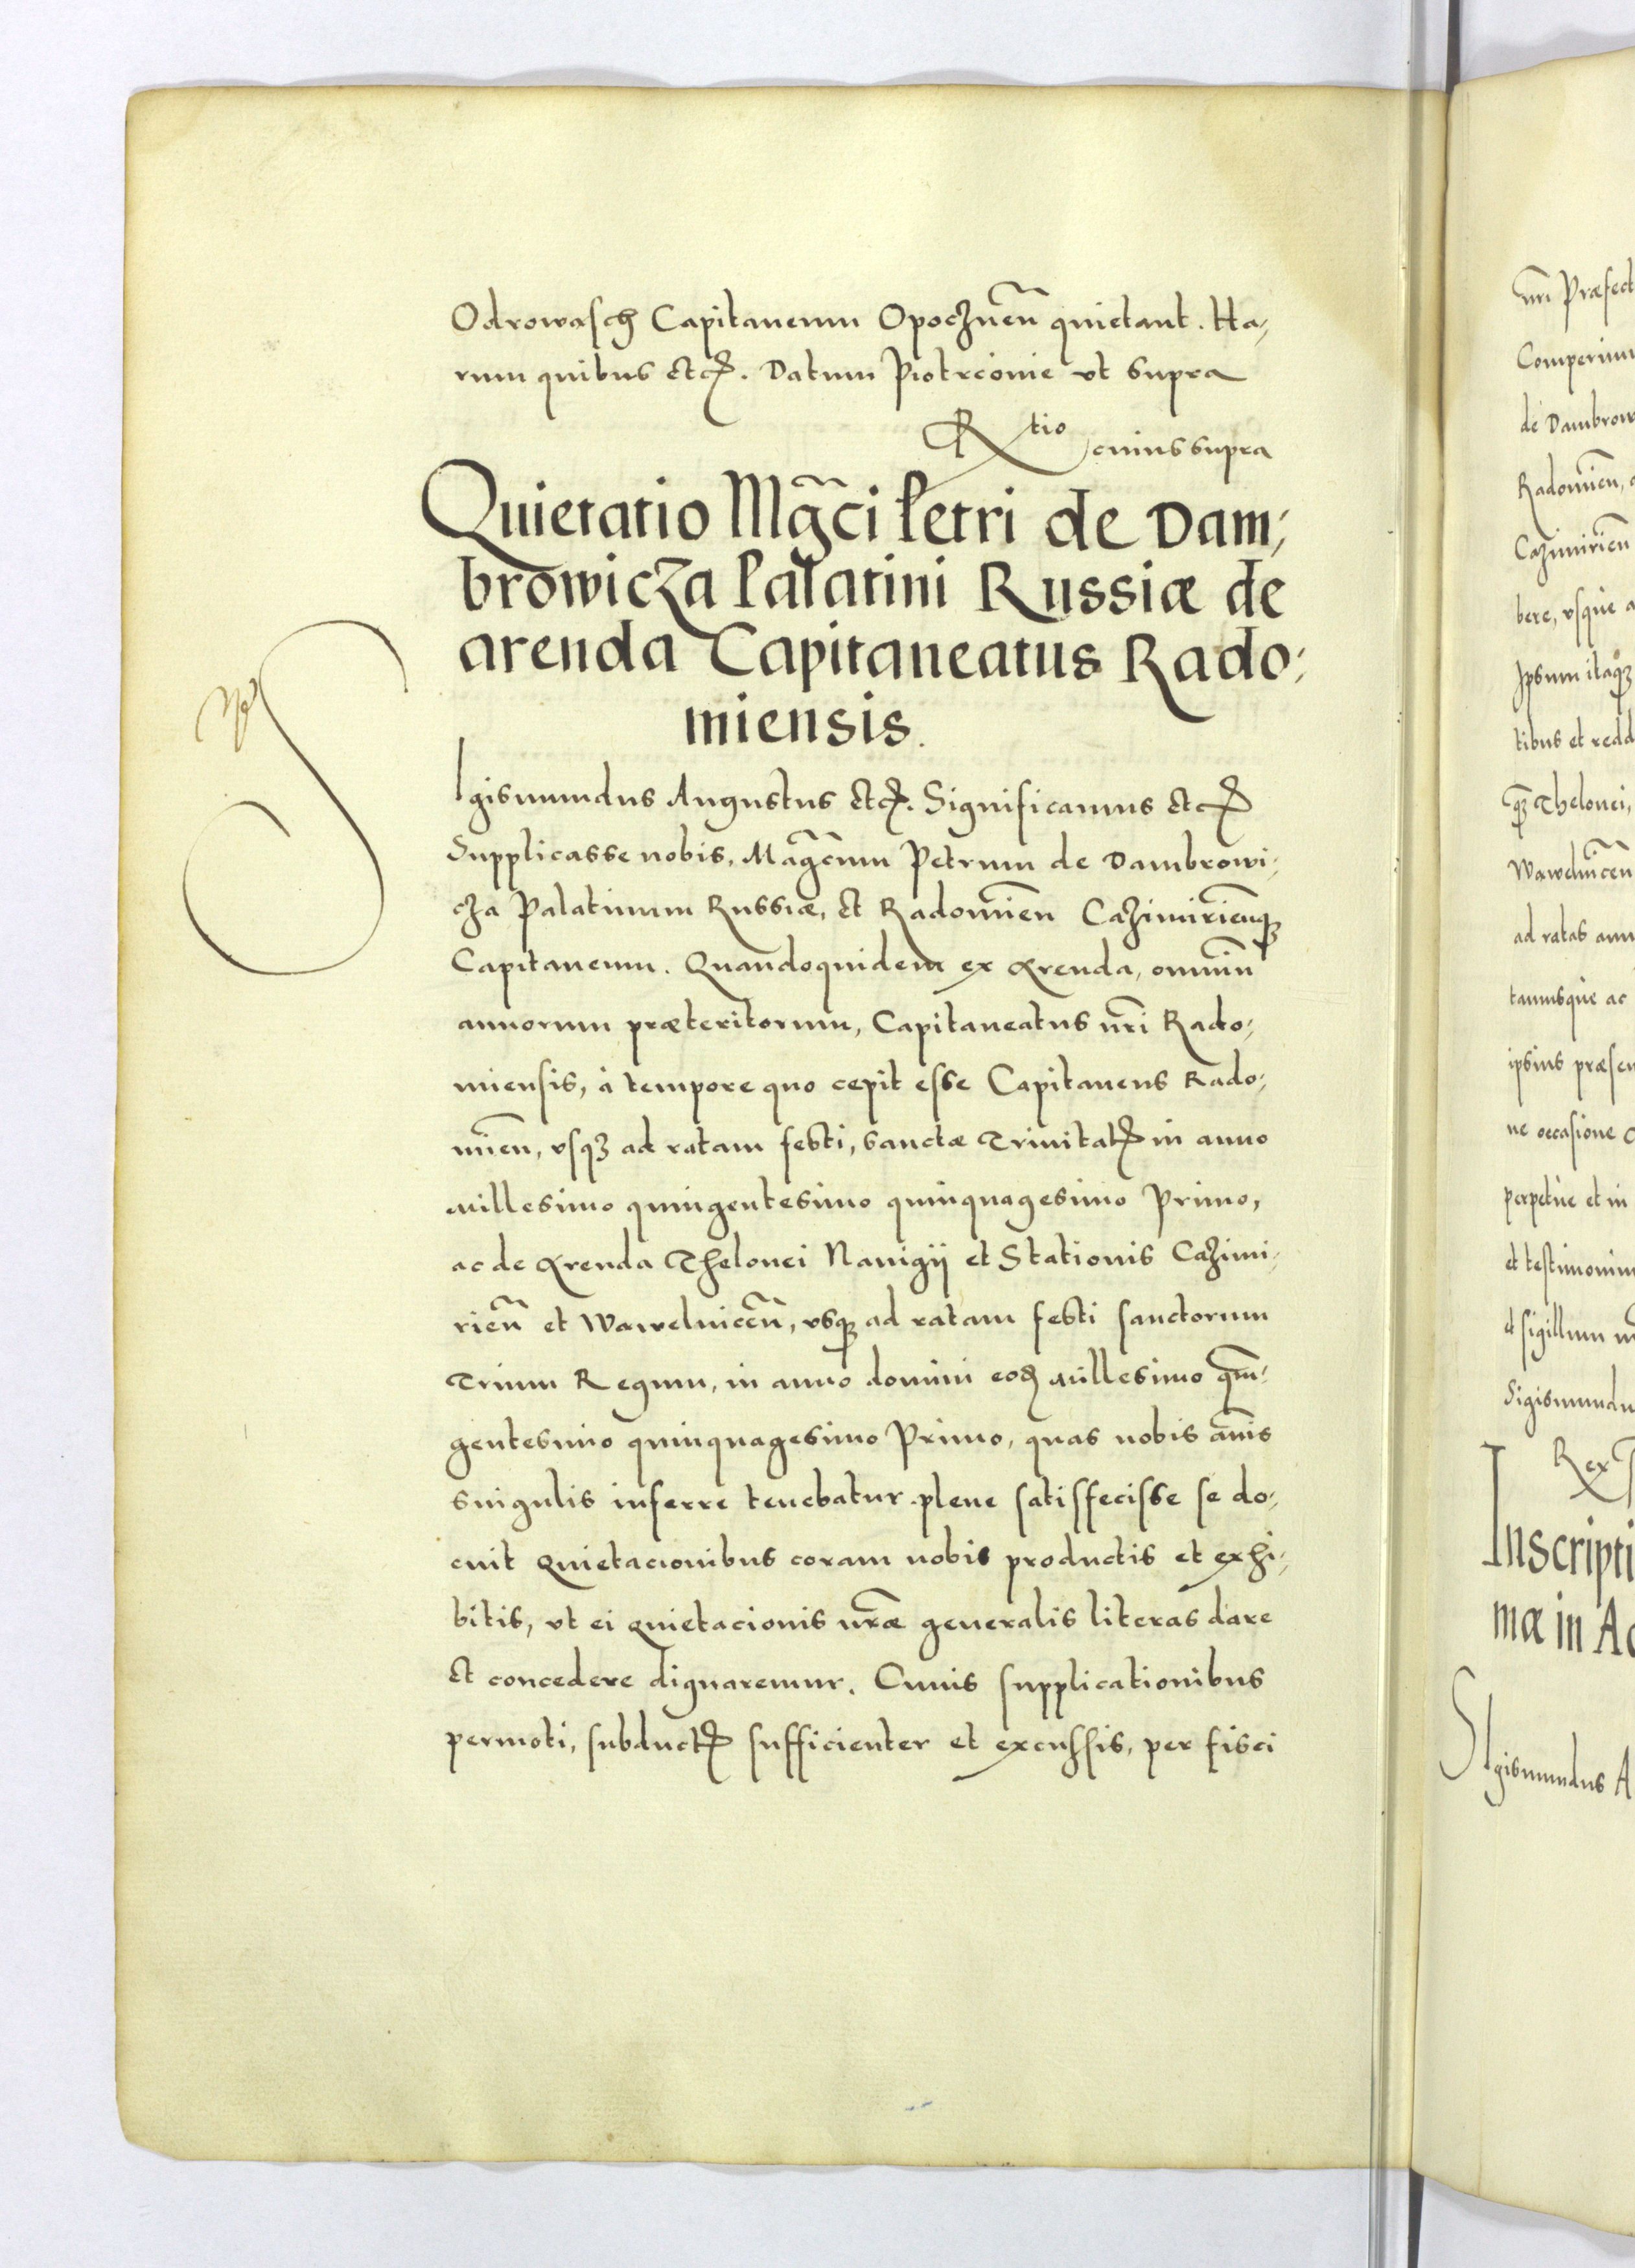 Odrowasch Capitaneum Opocznen̄ quietant. Ha,
rum quibus etc. Datum Piotrcovie vt supra
R tio cuius supra
Quietatio Mag̃ci Petri de Dam,
browicza Palatini Russiæ de
arenda Capitaneatus Rado,
miensis.
SIgismundus Augustus etc. Significamus etc
Supplicasse nobis, Mag̃cum Petrum de Dambrowi,
cza Palatinum Russiæ, et Radomien̄ Cazimirien̄q3
Capitaneum. Quandoquidem ex Arenda, omniũ
annorum præteritorum, Capitaneatus nr̃i Rado,
miensis, à tempore quo cepit esse Capitaneus Rado,
mien̄, vsq3 ad ratam festi, sanctæ Trinitatꝭ in anno
millesimo quingentesimo quinquagesimo Primo,
ac de Arenda Thelonei Nauigij et Stationis Cazimi,
rien̄ et Wawelnicen̄, vsq3 ad ratam festi sanctorum
Trium Regum, in anno domini eod millesimo qũn,
gentesimo quinquagesimo Primo, quas nobis an̄is
singulis inferre tenebatur plene satisfecisse se do,
cuit Quietacionibus coram nobis productis et exhi,
bitis, vt ei quietacionis nr̃æ generalis literas dare
et concedere dignaremur. Cuius supplicationibus
permoti, subductꝭ sufficienter et excussis, per fisci
nr̃i Præfect
Comperimu
de Dambrow
Radomien̄,
Cazimirien̄
bere, vsque a
Ipsum itaq3
tibus et redd
q3 Thelonei,
Wawelnicen̄
ad ratas ann
tamusque ac
ipsius præsen
ne occasione
perpetue et in
et testimoniu
et sigillum
Sigismundu
Rex
Inscripti
mæ in Ac
SIgismundus A